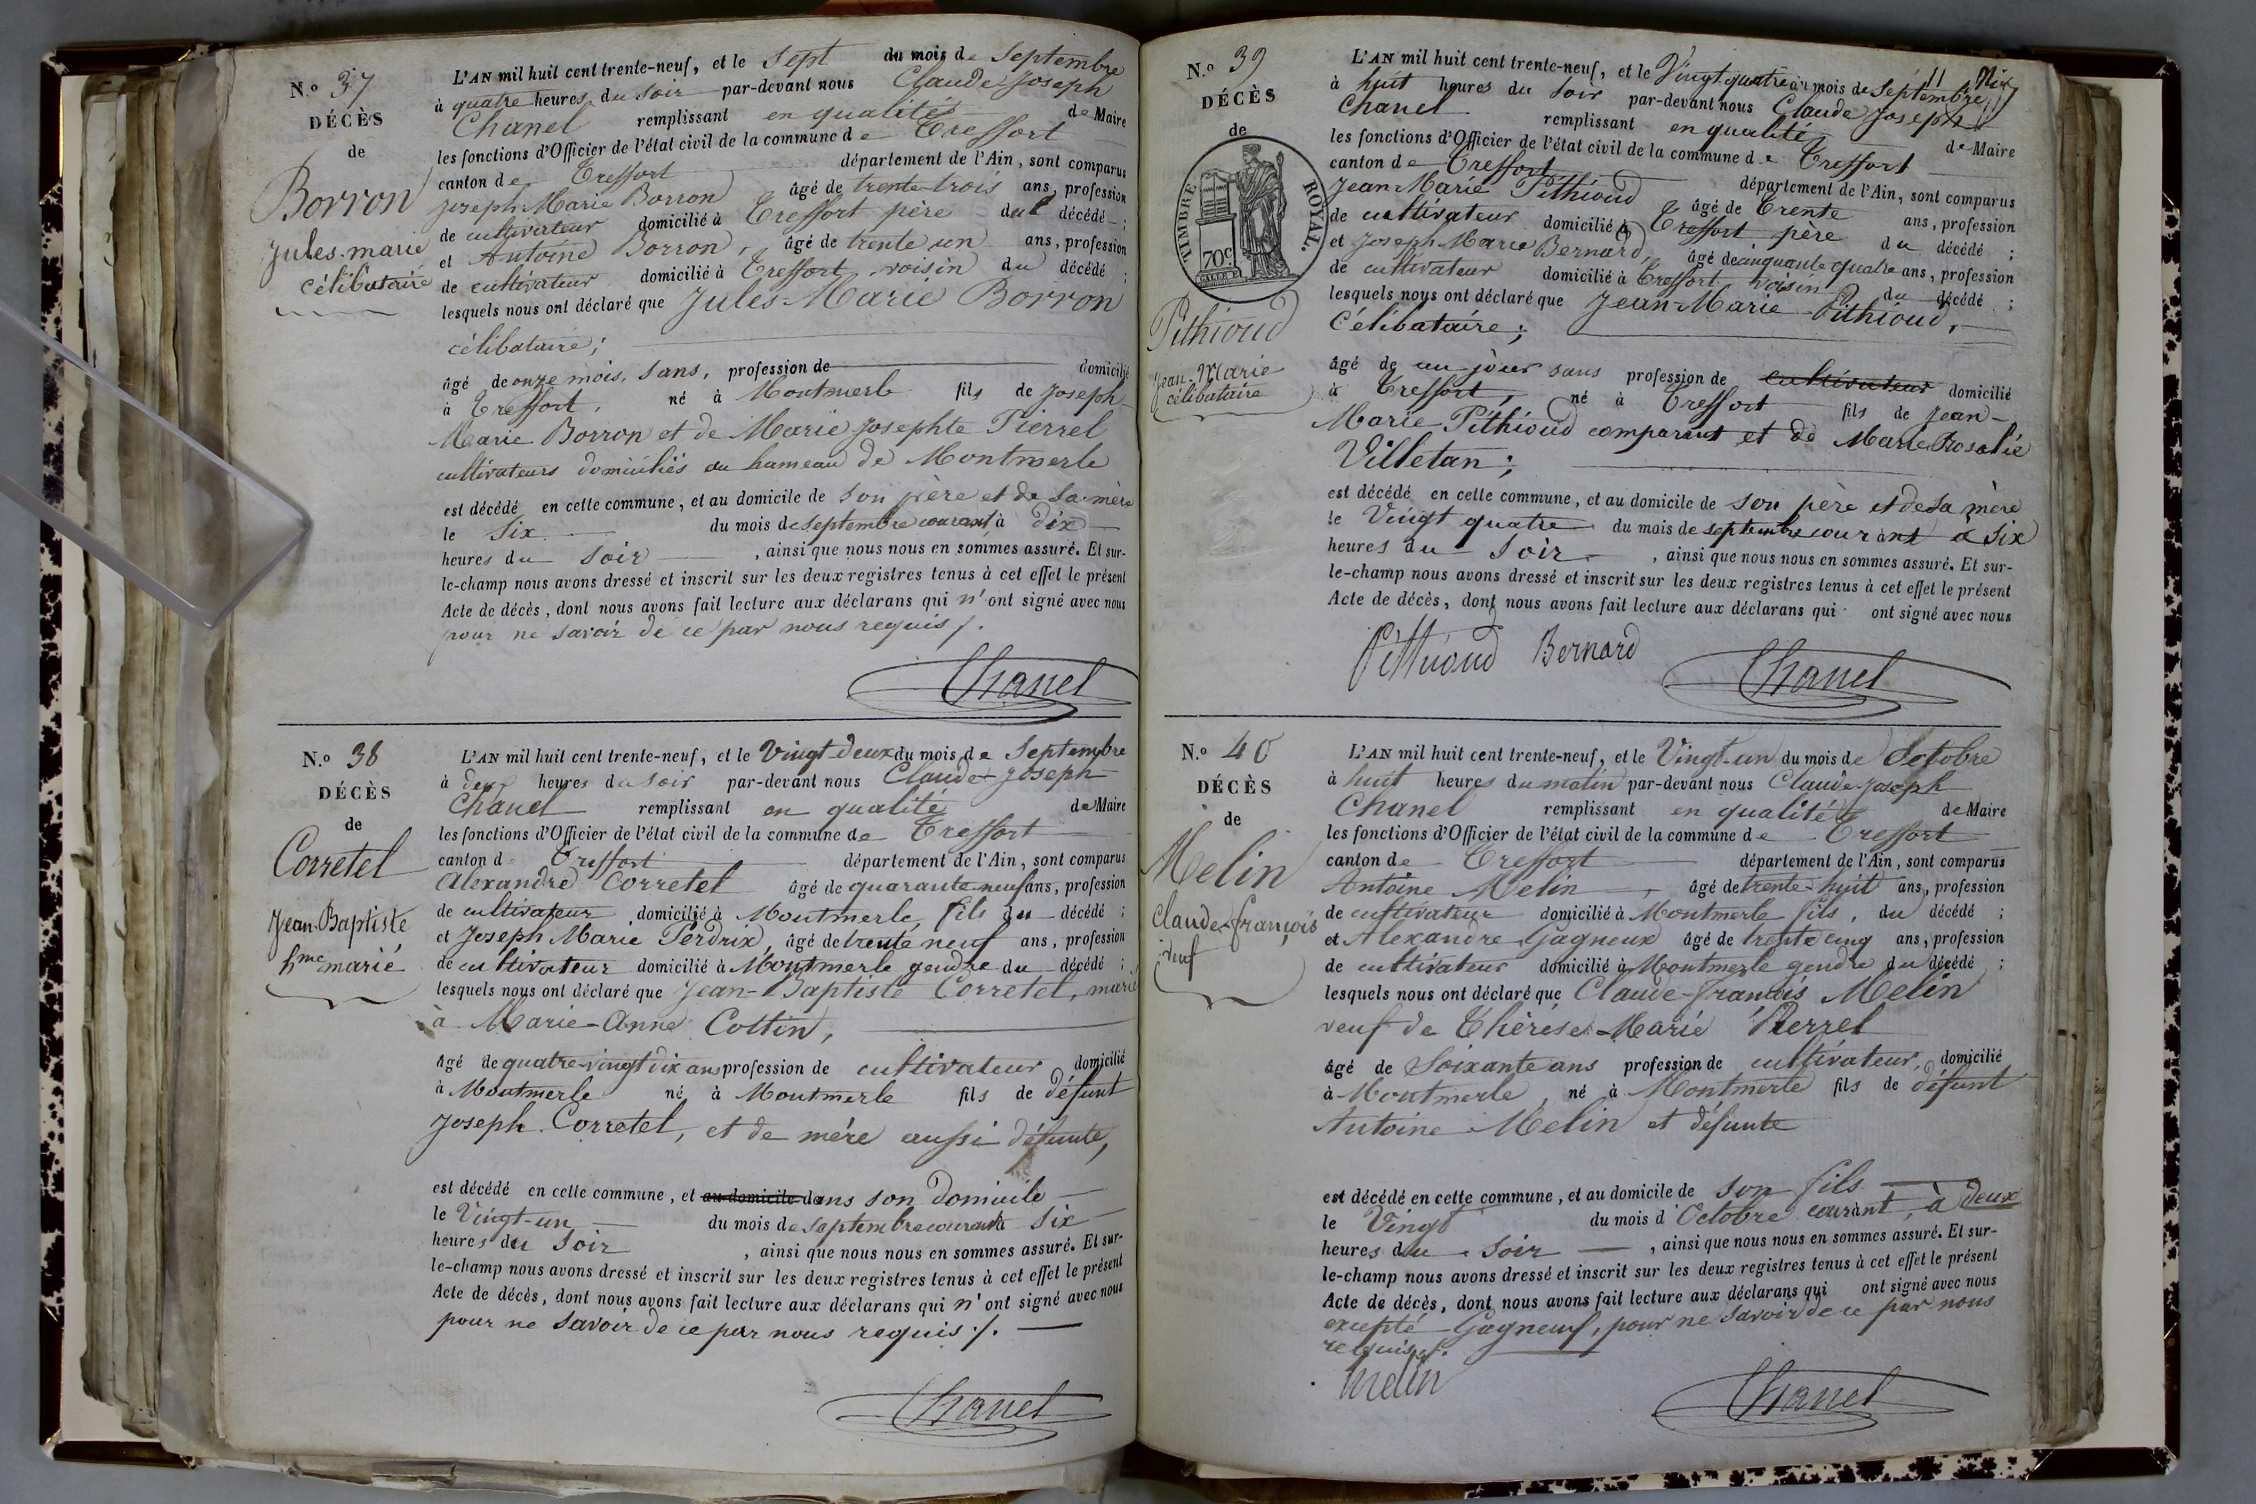 N.º 37
DÉCÈS
de
Borron
Jules-marie
célibataire
L'AN mil huit cent trente-neuf, et le sept du mois de Septembre
à quatre heures du soir par-devant nous Claude-Joseph
Chanel remplissant en qualité de Maire
les fonctions d'Officier de l'état civil de la commune de Treffort
canton de Treffort département de l'Ain, sont comparus
Joseph Marie Borron âgé de trente-trois ans, profession
de cultivateur domicilié à Treffort père du décédé ;
et Antoine Borron, âgé de trente un ans, profession
de cultivateur domicilié à Treffort voisin du décédé ;
lesquels nous ont déclaré que Jules-Marie Borron
célibataire ;
âgé de onze mois, sans, profession de domicilié
à Treffort, né à Montmerle fils de Joseph
Marie Borron et de Marie Josephte Pierrel
cultivateurs domiciliés au hameau de Montmerle
est décédé en cette commune, et au domicile de son père et de sa mère
le six du mois de septembre courant à dix
heures du soir, ainsi que nous nous en sommes assuré. Et sur-
le-champ nous avons dressé et inscrit sur les deux registres tenus à cet effet le présent
Acte de décès, dont nous avons fait lecture aux déclarans qui n'ont signé avec nous
pour ne savoir de ce par nous requis ./.
Chanel
N.º 38
DÉCÈS
de
Corretel
Jean-Baptiste
hme marié
L'AN mil huit cent trente-neuf, et le Vingt-deux du mois de Septembre
à deux heures du soir par-devant nous Claude-Joseph
Chanel remplissant en qualité de Maire
les fonctions d'Officier de l'état civil de la commune de Treffort
canton de Treffort département de l'Ain, sont comparus
Alexandre Corretel âgé de quarante-neuf ans, profession
de cultivateur domicilié à Montmerle, fils du décédé ;
et Joseph Marie Perdrix, âgé de trente neuf ans, profession
de cultivateur domicilié à Montmerle gendre du décédé ;
lesquels nous ont déclaré que Jean-Baptiste Corretel, marié
à Marie-Anne Cottin,
âgé de quatre-vingt dix ans profession de cultivateur domicilié
à Montmerle né à Montmerle fils de défunt
Joseph Corretel, et de mère aussi défunte,
est décédé en cette commune, et au domicile dans son domicile
le Vingt-un du mois de septembre courant à six
heures du soir, ainsi que nous nous en sommes assuré. Et sur-
le-champ nous avons dressé et inscrit sur les deux registres tenus à cet effet le présent
Acte de décès, dont nous avons fait lecture aux déclarans qui n'ont signé avec nous
pour ne savoir de ce par nous requis ./.
Chanel
N.º 39
DÉCÈS
de
TIMBRE ROYAL.
70c
Pithioud
Jean-Marie
célibataire
L'AN mil huit cent trente-neuf, et le Vingt-quatre du mois de Septembre
à huit heures du soir par-devant nous Claude Joseph
Chanel remplissant en qualité de Maire
les fonctions d'Officier de l'état civil de la commune de Treffort
canton de Treffort département de l'Ain, sont comparus
Jean-Marie Pithioud âgé de Trente ans, profession
de cultivateur domicilié à Treffort père du décédé ;
et Joseph Marie Bernard, âgé de cinquante quatre ans, profession
de cultivateur domicilié à Treffort voisin du décédé ;
lesquels nous ont déclaré que Jean-Marie Pithioud,
Célibataire ;
âgé de un jour sans profession de cultivateur domicilié
à Treffort, né à Treffort fils de Jean-
Marie Pithioud comparant et de Marie Rosalie
Villetan ;
est décédé en cette commune, et au domicile de son père et de sa mère
le Vingt quatre du mois de septembre courant à six
heures du soir, ainsi que nous nous en sommes assuré. Et sur-
le-champ nous avons dressé et inscrit sur les deux registres tenus à cet effet le présent
Acte de décès, dont nous avons fait lecture aux déclarans qui ont signé avec nous
Pithioud Bernard
Chanel
N.º 40
DÉCÈS
de
Melin
Claude-françois
veuf
L'AN mil huit cent trente-neuf, et le Vingt-un du mois de Octobre
à huit heures du matin par-devant nous Claude-Joseph
Chanel remplissant en qualité de Maire
les fonctions d'Officier de l'état civil de la commune de Treffort
canton de Treffort département de l'Ain, sont comparus
Antoine Melin, âgé de trente-huit ans, profession
de cultivateur domicilié à Montmerle fils, du décédé ;
et Alexandre Gagneux âgé de trente cinq ans, profession
de cultivateur domicilié à Montmerle gendre du décédé ;
lesquels nous ont déclaré que Claude-françois Melin
veuf de Thérèse-Marie Pierrel
âgé de Soixante ans profession de cultivateur, domicilié
à Montmerle, né à Montmerle fils de défunt
Antoine Melin et défunte
est décédé en cette commune, et au domicile de son fils
le Vingt du mois d'Octobre courant, à deux
heures du soir, ainsi que nous nous en sommes assuré. Et sur-
le-champ nous avons dressé et inscrit sur les deux registres tenus à cet effet le présent
Acte de décès, dont nous avons fait lecture aux déclarans qui ont signé avec nous
excepté Gagneux, pour ne savoir de ce par nous
requis ./.
Melin
Chanel